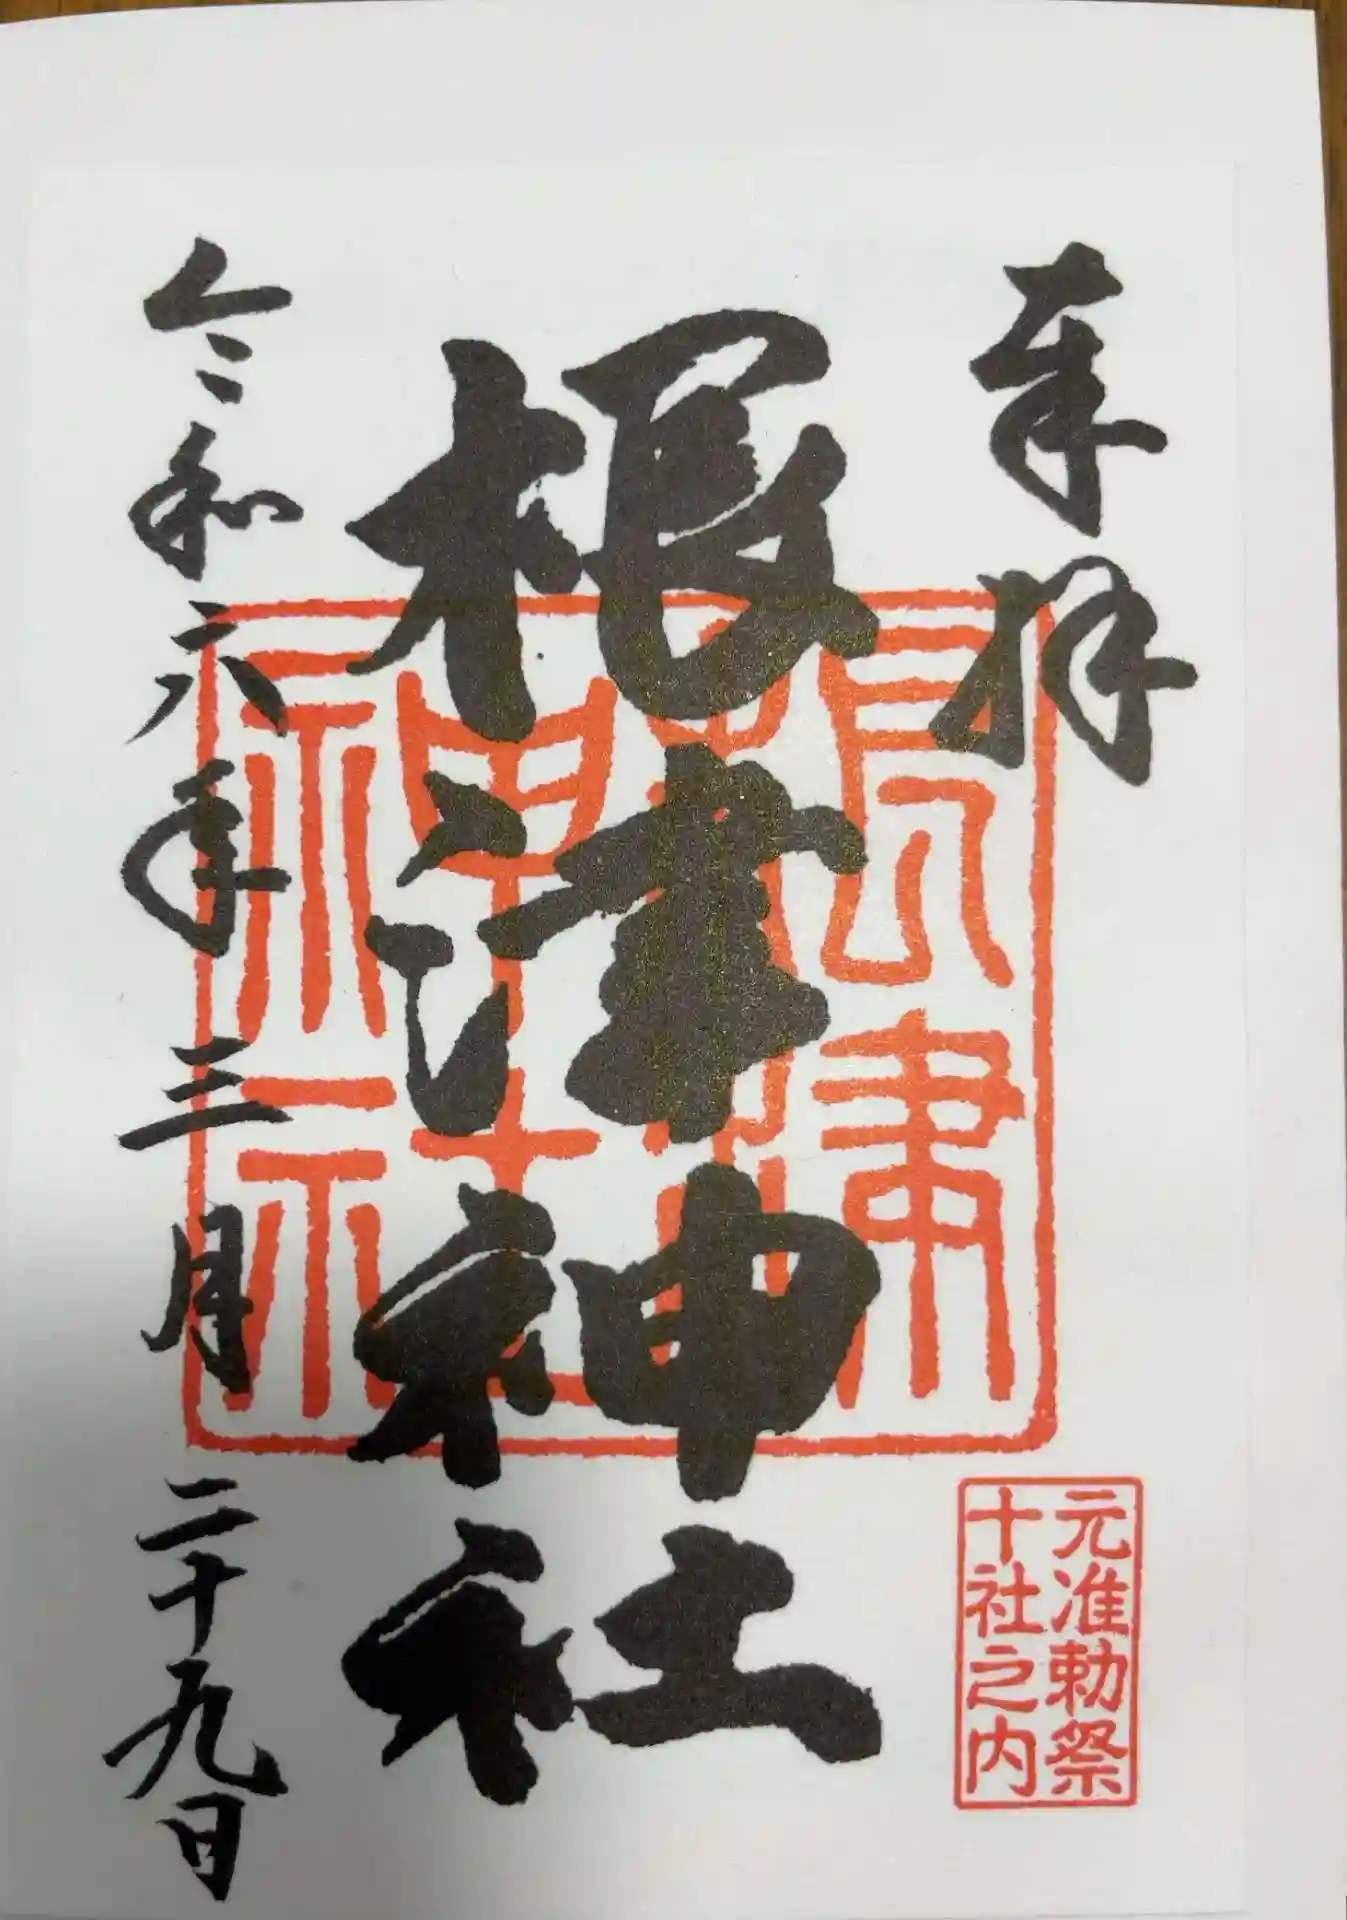 奉拝
根津神社
令和六年三月二十九日
根津
神社
元准勅祭
十社之内